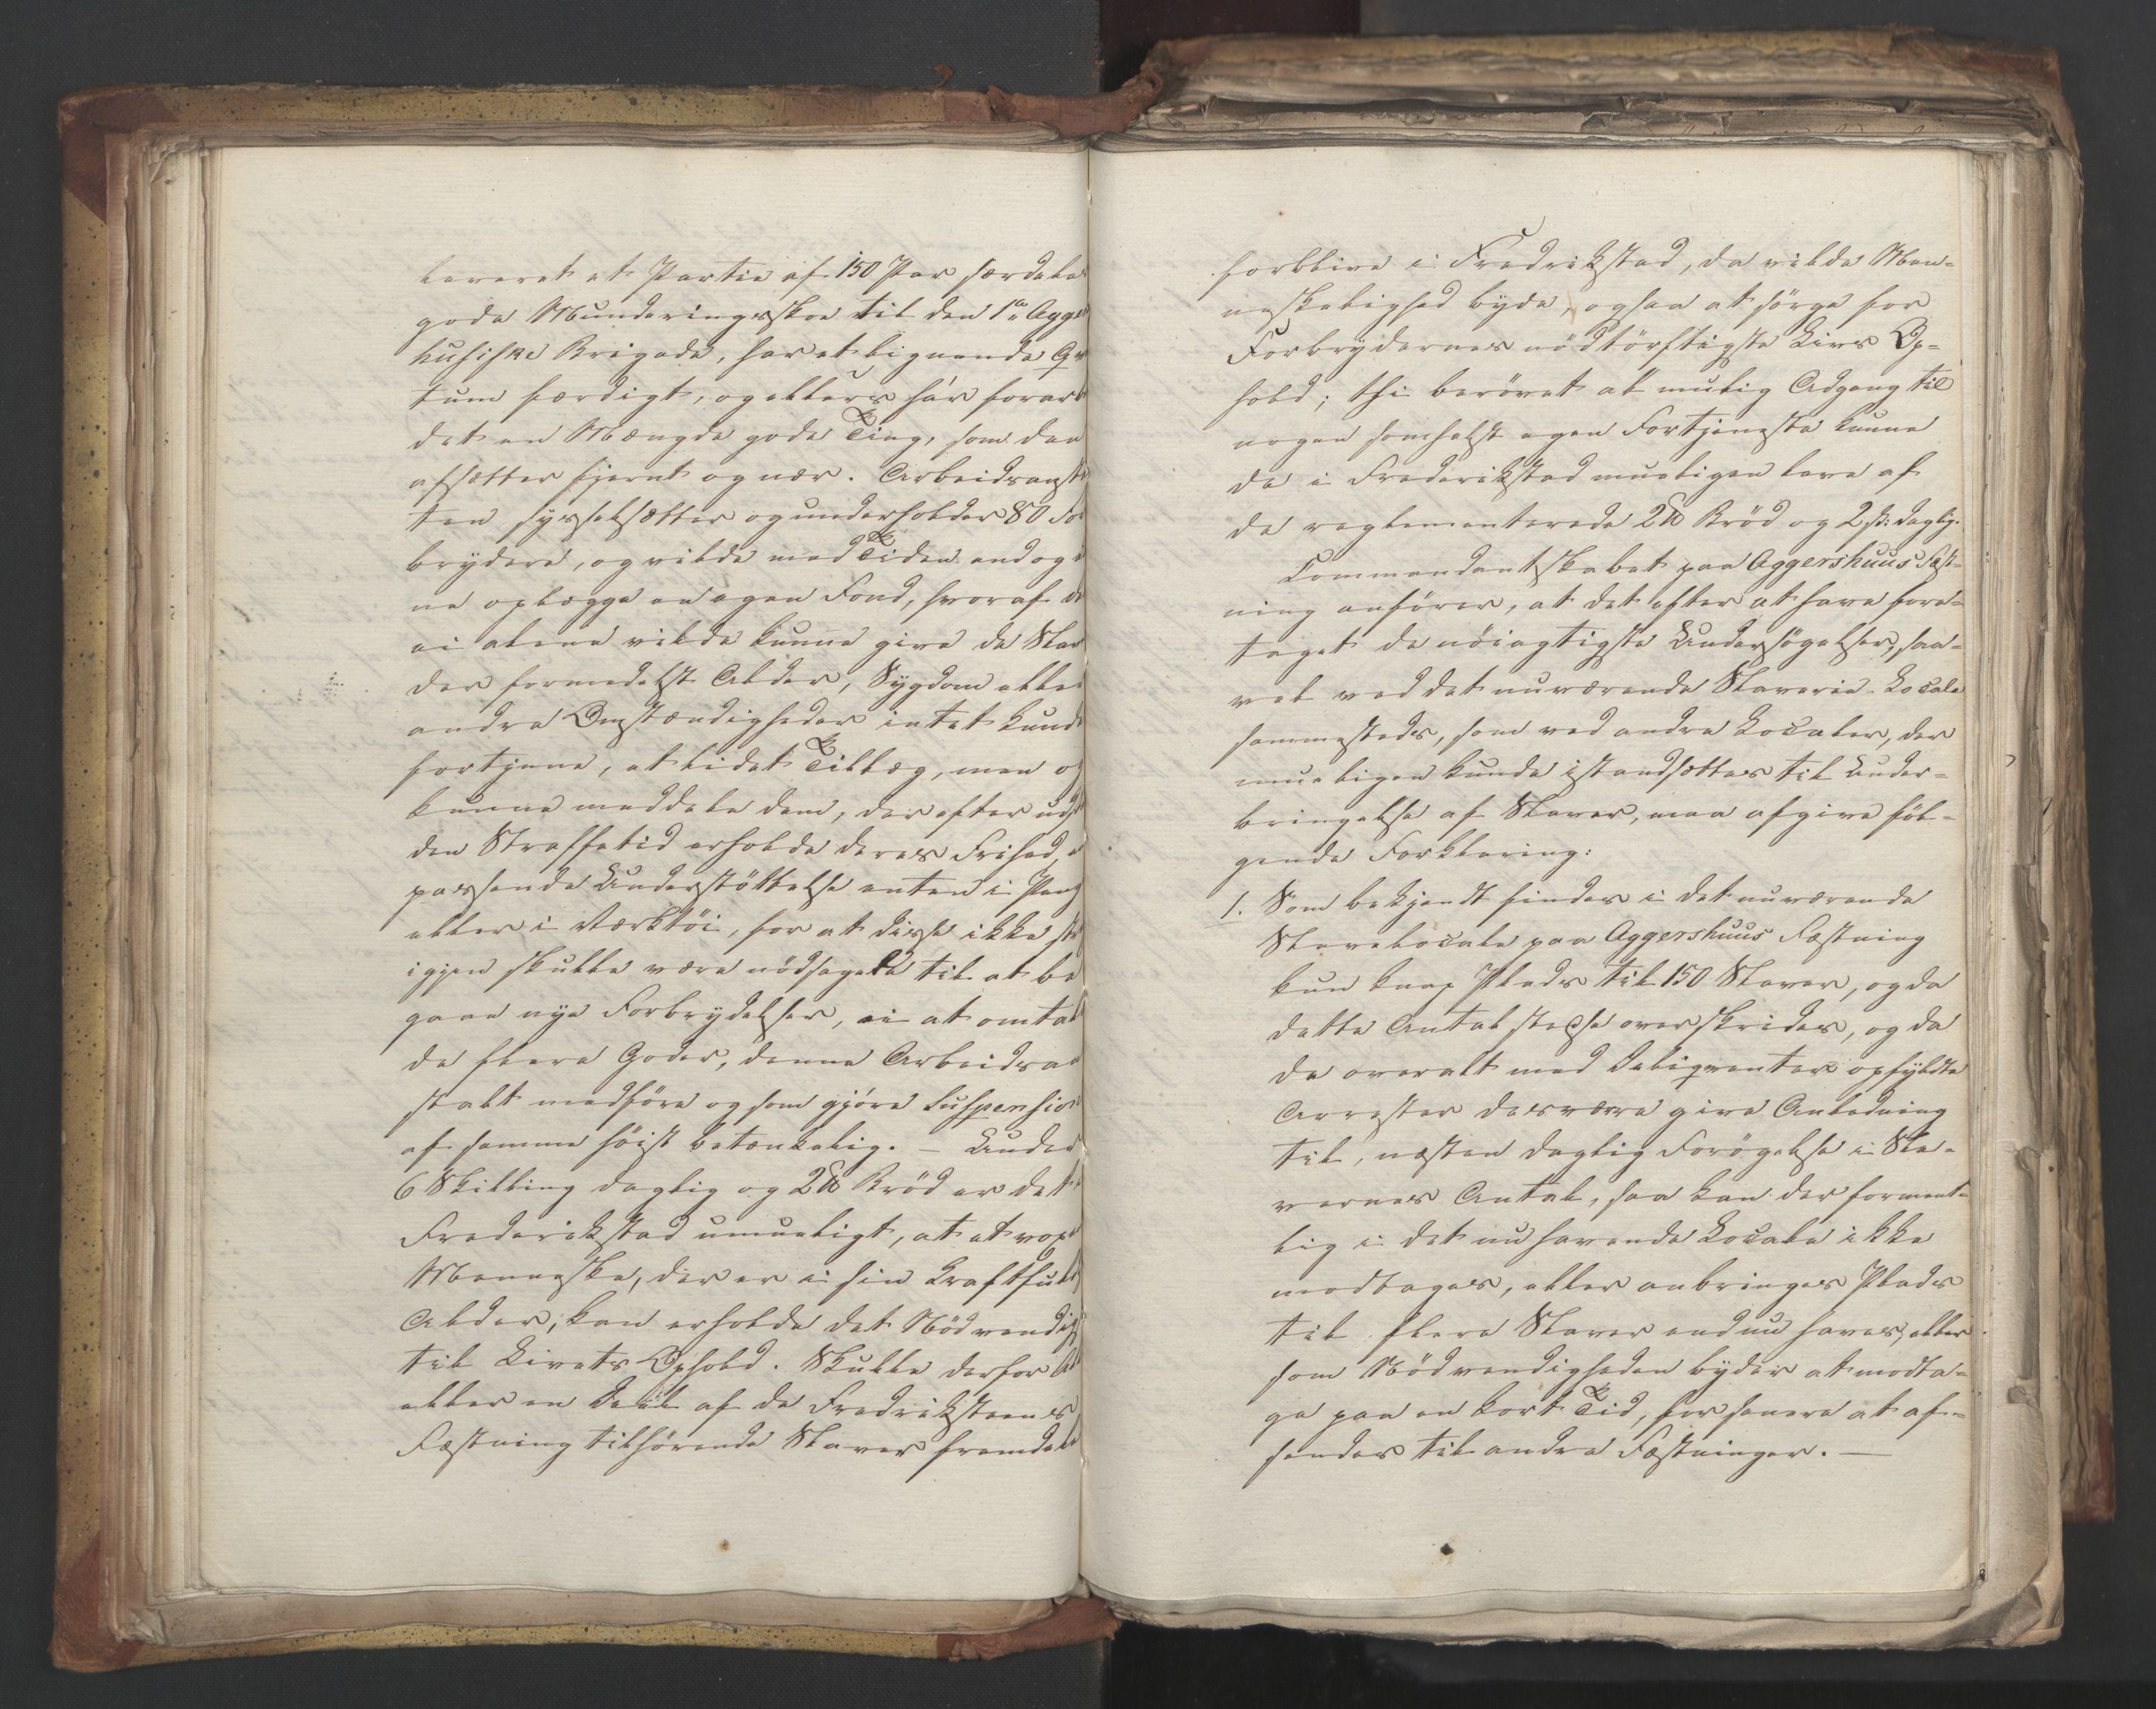 leveret et Partie af 150 Par særdeles
gode Munderingsskoe til den 1e Agger
husiske Brigade, har et lignende Qvan
tum færdigt, og ellers har forarbei
det en Mængde gode Ting, som den
afsætter fjernt og nær. Arbeidsanstal
ten sysselsætter og underholder 80 For
brydere, og vilde med Tiden endog
ne oplægge en egen Fond, hvoraf de
ei alene vilde kunne give de Slaver
der formedelst Alder, Sygdom eller
andre Omstændigheder intet kunde
fortjene, et lidet Tillæg, men og
kunne meddele dem, der efter udst
den Straffetid erholde deres Frihed,
passende Understöttelse enten i Peng
eller i Værktöi, for at disse ikke st
igjen skulle være nödsagede til at be
gaae nye Forbrydelser, ei at omtale
de flere Goder, denne Arbeidsan
stalt medföre og som gjöre Suspension
af samme höist betænkelig. – Under
6 Skilling daglig og 2 ℔ Bröd er det i
Frederikstad umueligt, at et voxe
Menneske, der er i sin kraftfulde
Alder, kan erholde det Nödvendig
til Livets Ophold. Skulle derfor
eller en Deel af de Fredriksteens
Fæstning tilhörende Slaver fremdeles
forblive i Fredrikstad, da vilde Men=
neskelighed byde, ogsaa at sörge for
Forbrydernes nödtörftigste Livs Op=
hold; thi berövet al mulig Adgang til
nogen somhelst egen Fortjeneste kunne
de i Frederikstad mueligen leve af
de reglementerede 2 ℔ Bröd og 2 ß: daglig.
Commandantskabet paa Aggershuus Fæst=
ning anförer, at det efter at have fore=
taget de nöiagtigste Undersögelser, saa=
vel ved det nuværende Slaverie-Locale
sammesteds, som ved andre Localer, der
mueligen kunde istandsættes til Under=
bringelse af Slaver, maa afgive föl=
gende Forklaring:
1. Som bekjendt findes i det nuværende
Slavelocale paa Aggershuus Fæstning
kun knap Plads til 150 Slaver, og da
dette Antal stedse overskrides, og da
de overalt med Deliqventer opfyldte
Arrester desværre give Anledning
til, næsten daglig Forögelse i Sla=
vernes Antal, saa kan der forment=
lig i det nu havende Locale ikke
modtages, eller anbringes Plads
til flere Slaver end nu haves, eller
som Nödvendigheden byder at modta=
ge paa en kort Tid, for senere at af=
sendes til andre Fæstninger. –